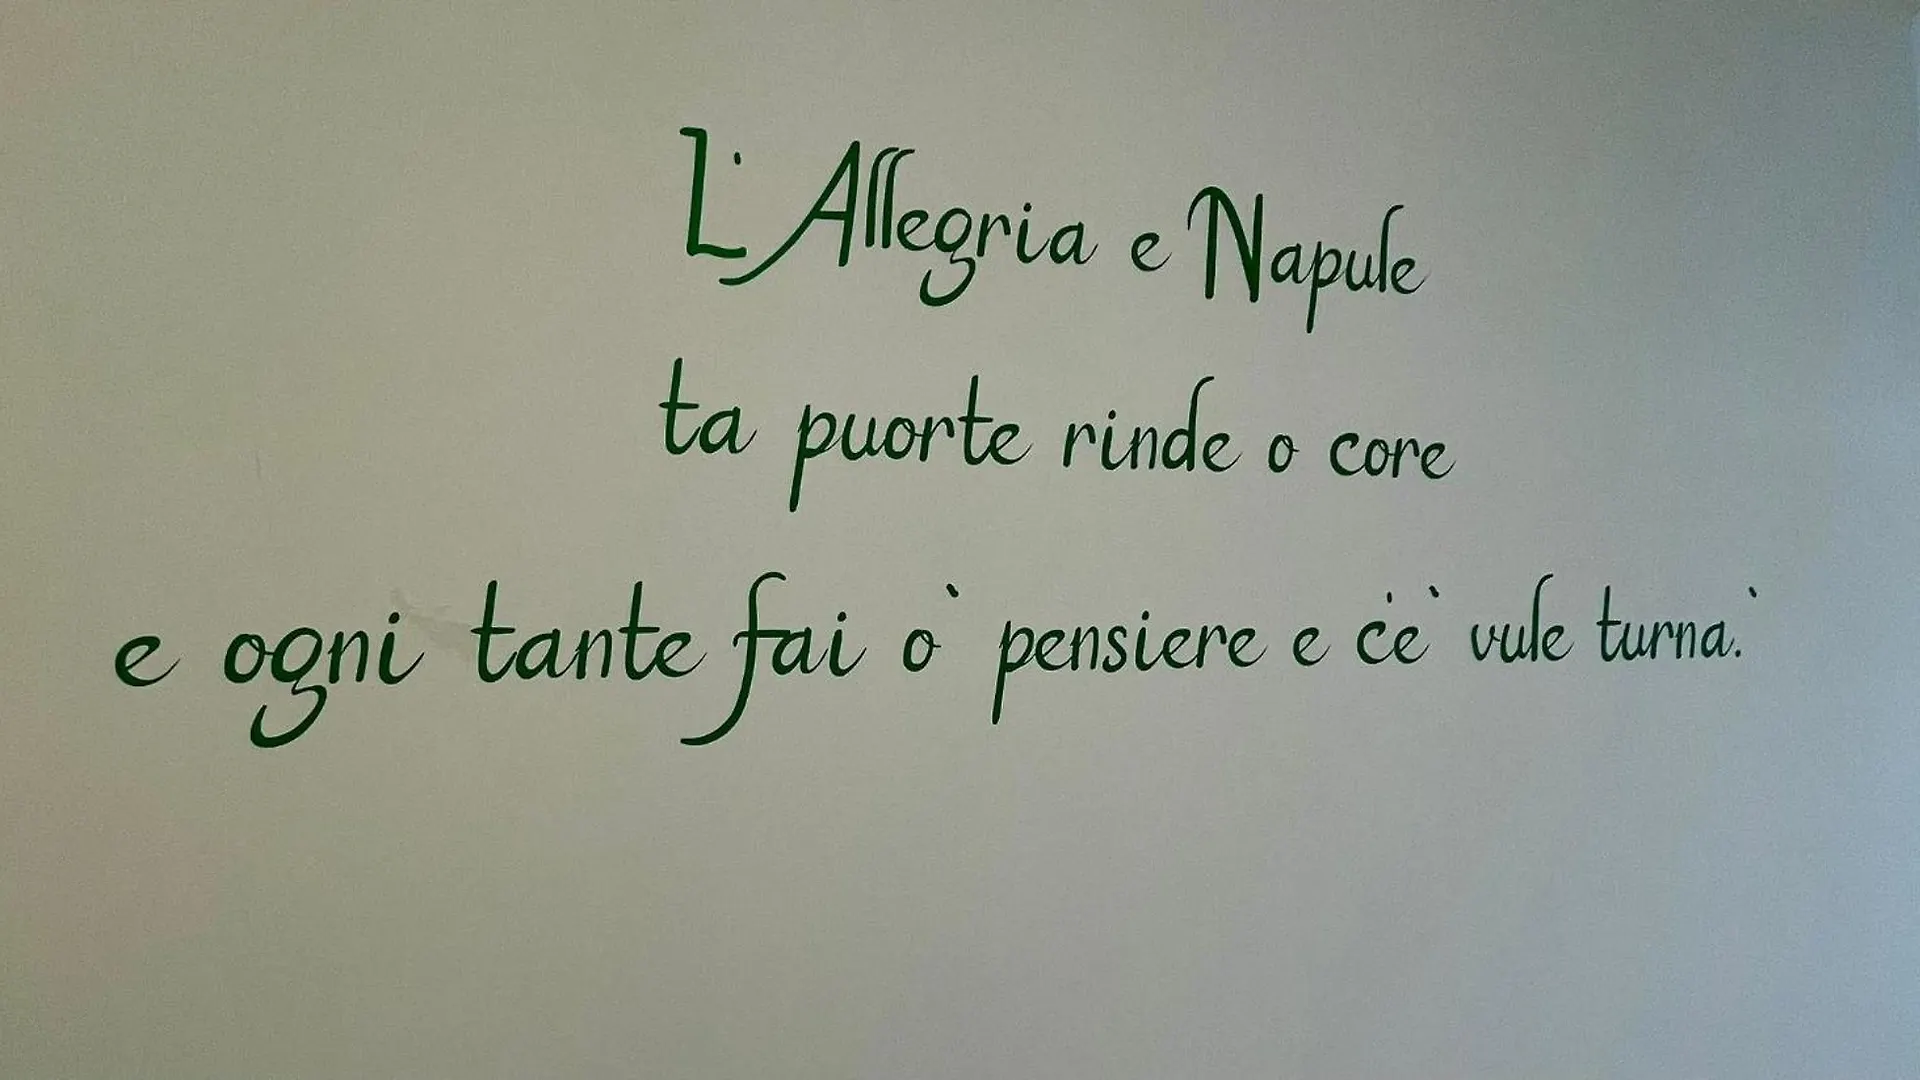 L'Allegria e Napule
ta puorte rinde o core
e ogni tante fai o' pensiere e c'e' vule turna.'